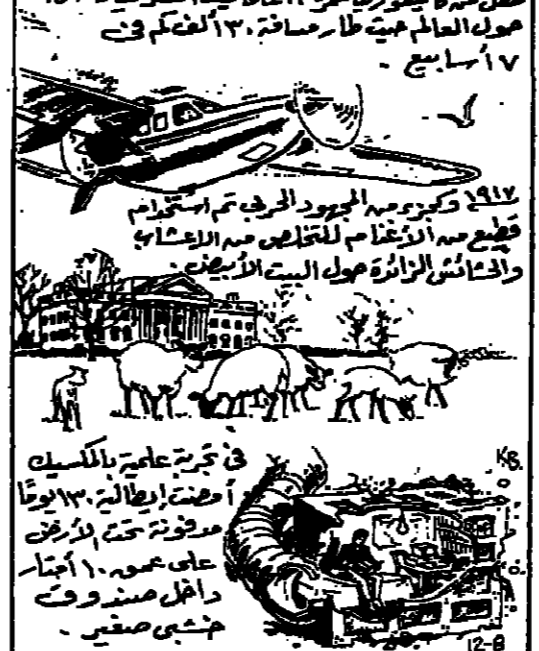 حول العالم حيث طار مسافة ٣٠ ألف كم في
٧ أسابيع .
١٩١٧ وكجزء من المجهود الحربي تم استخدام
قطيع من الأغنام للتخلص من الاعشاب
والحشائش الزائدة حول البيت الأبيض .
في تجربة علمية بالمكسيك
أمضت إيطالية ١٣٠ يومًا
مدفونة تحت الأرض
على عمق ١٠ أمتار
داخل صندوق
خشبي صغير .
K.B.
12-8